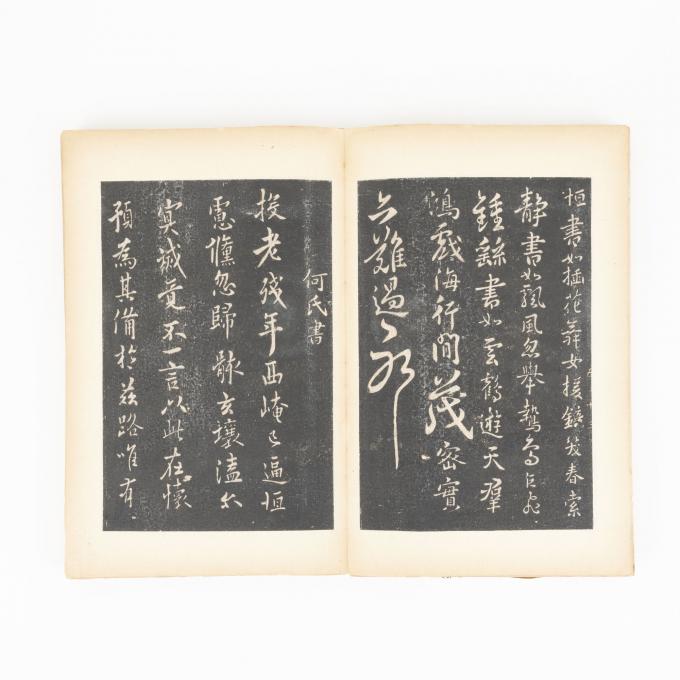 恒書如插花舞女援鏡笑春索
靜書如飄風忽舉鷙鳥乍飛
鍾繇書如雲鵠遊天群
鴻戲海行間茂密實
亦難過耶
何氏書
投老殘年西崦已逼恒
慮儻忽歸骸玄壤溘尔
冥滅竟不一言以此在懷
預為其備於茲路唯有